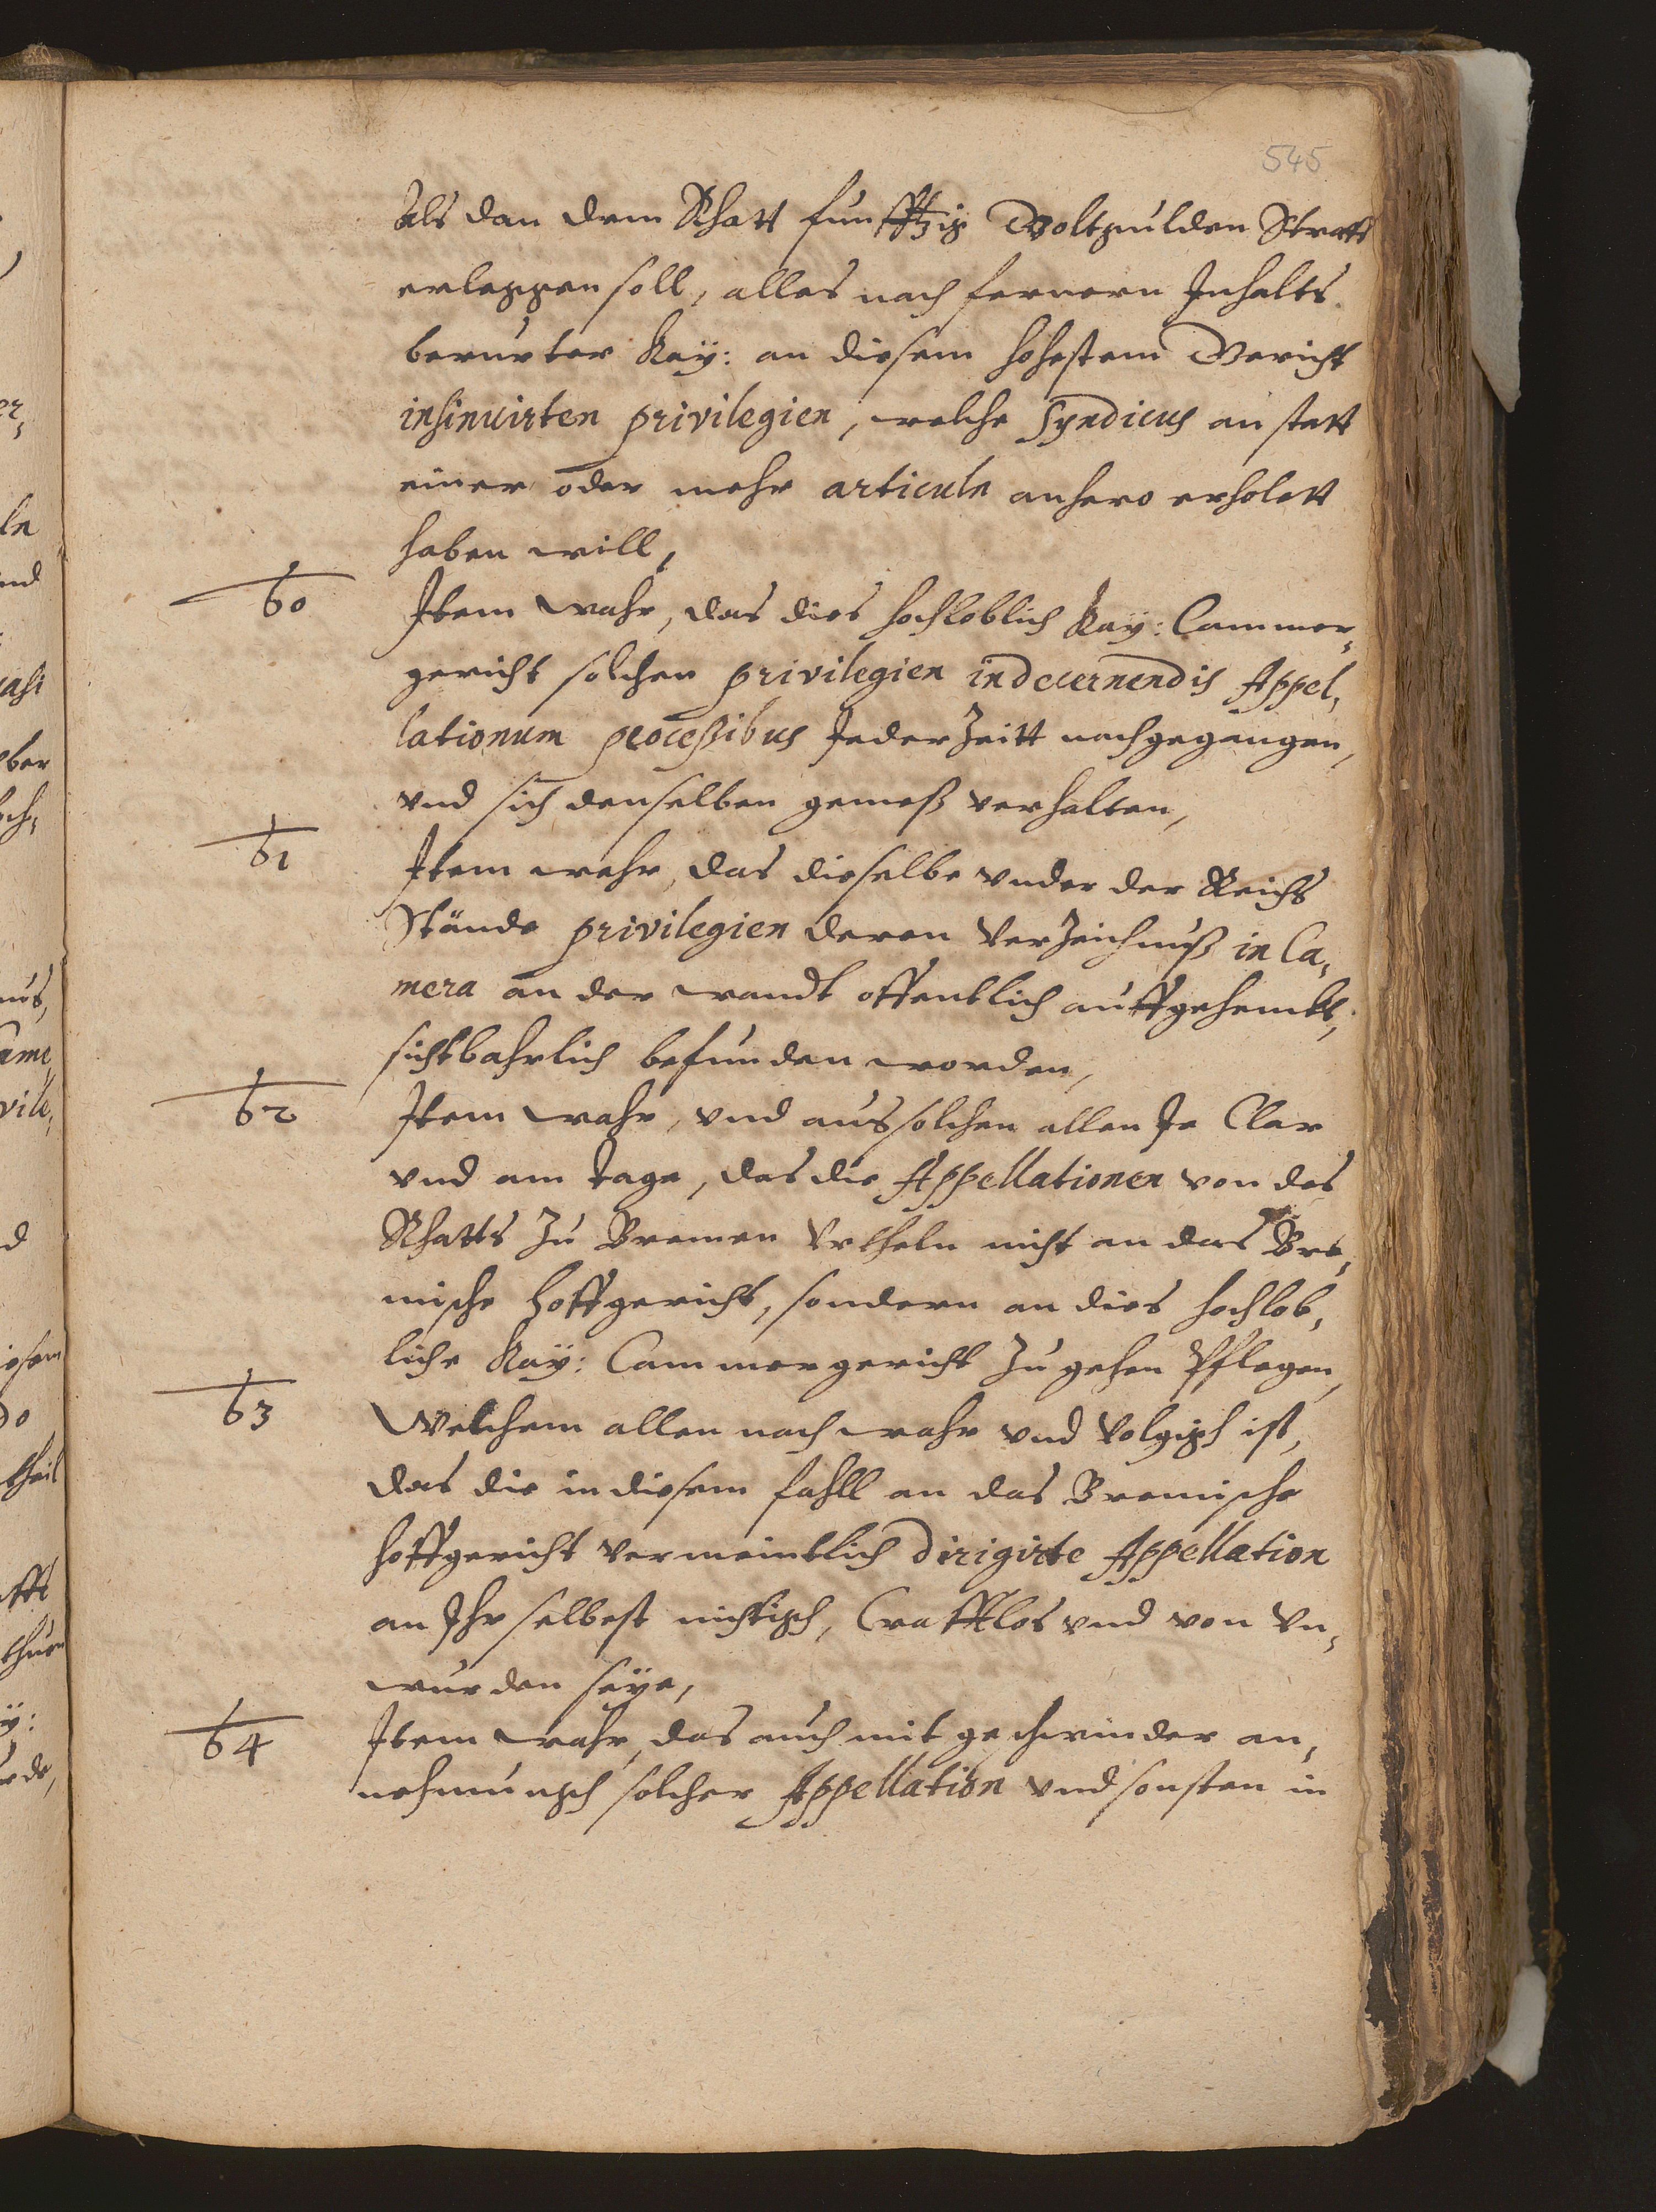 545
als dan dem Rhatt funfftzig Goltgulden Straff
erleggen soll, alles nach fernern Inhalts
berurter Kaÿ: an diesem hohestem Gericht
insinuirten privilegien, welche Syndicus an statt
einer oder mehr articuln anhero erholett
haben will,
60 Item wahr, das dies hochloblich Kaÿ: Cammer¬
gericht solchen privilegien in decernendis Appel¬
lationum processibus Jeder Zeitt nachgegangen,
vnd sich denselben gemeß verhalten,
61 Item wahr, das dieselbe vnder der Reichs
Stände privilegien deren Verzeichnuß in Ca¬
mera an der wandt offentlich auffgehenckt,
sichtbahrlich befunden worden,
62 Item wahr, vnd aus solchen allen Ja Clar
vnd am tage, das die Appellationen von des
Rhatts zu Bremen Vrtheln nicht an das Bre¬
mische Hoffgericht, sondern an dies hochlob¬
liche Kaÿ: Cammergericht zu gehen Pflegen,
63 Welchem allen nach wahr vnd Volgigh ist,
das die in diesem fahll an das Bremische
Hoffgericht vermeintlich dirigirte Appellation
an Ihr selbest nichtigh, Crafftlos vnd von Vn¬
wurden seÿe,
64 Item wahr, das auch mit geschwinder an¬
nehmungh solcher Appellation vnd sonsten in